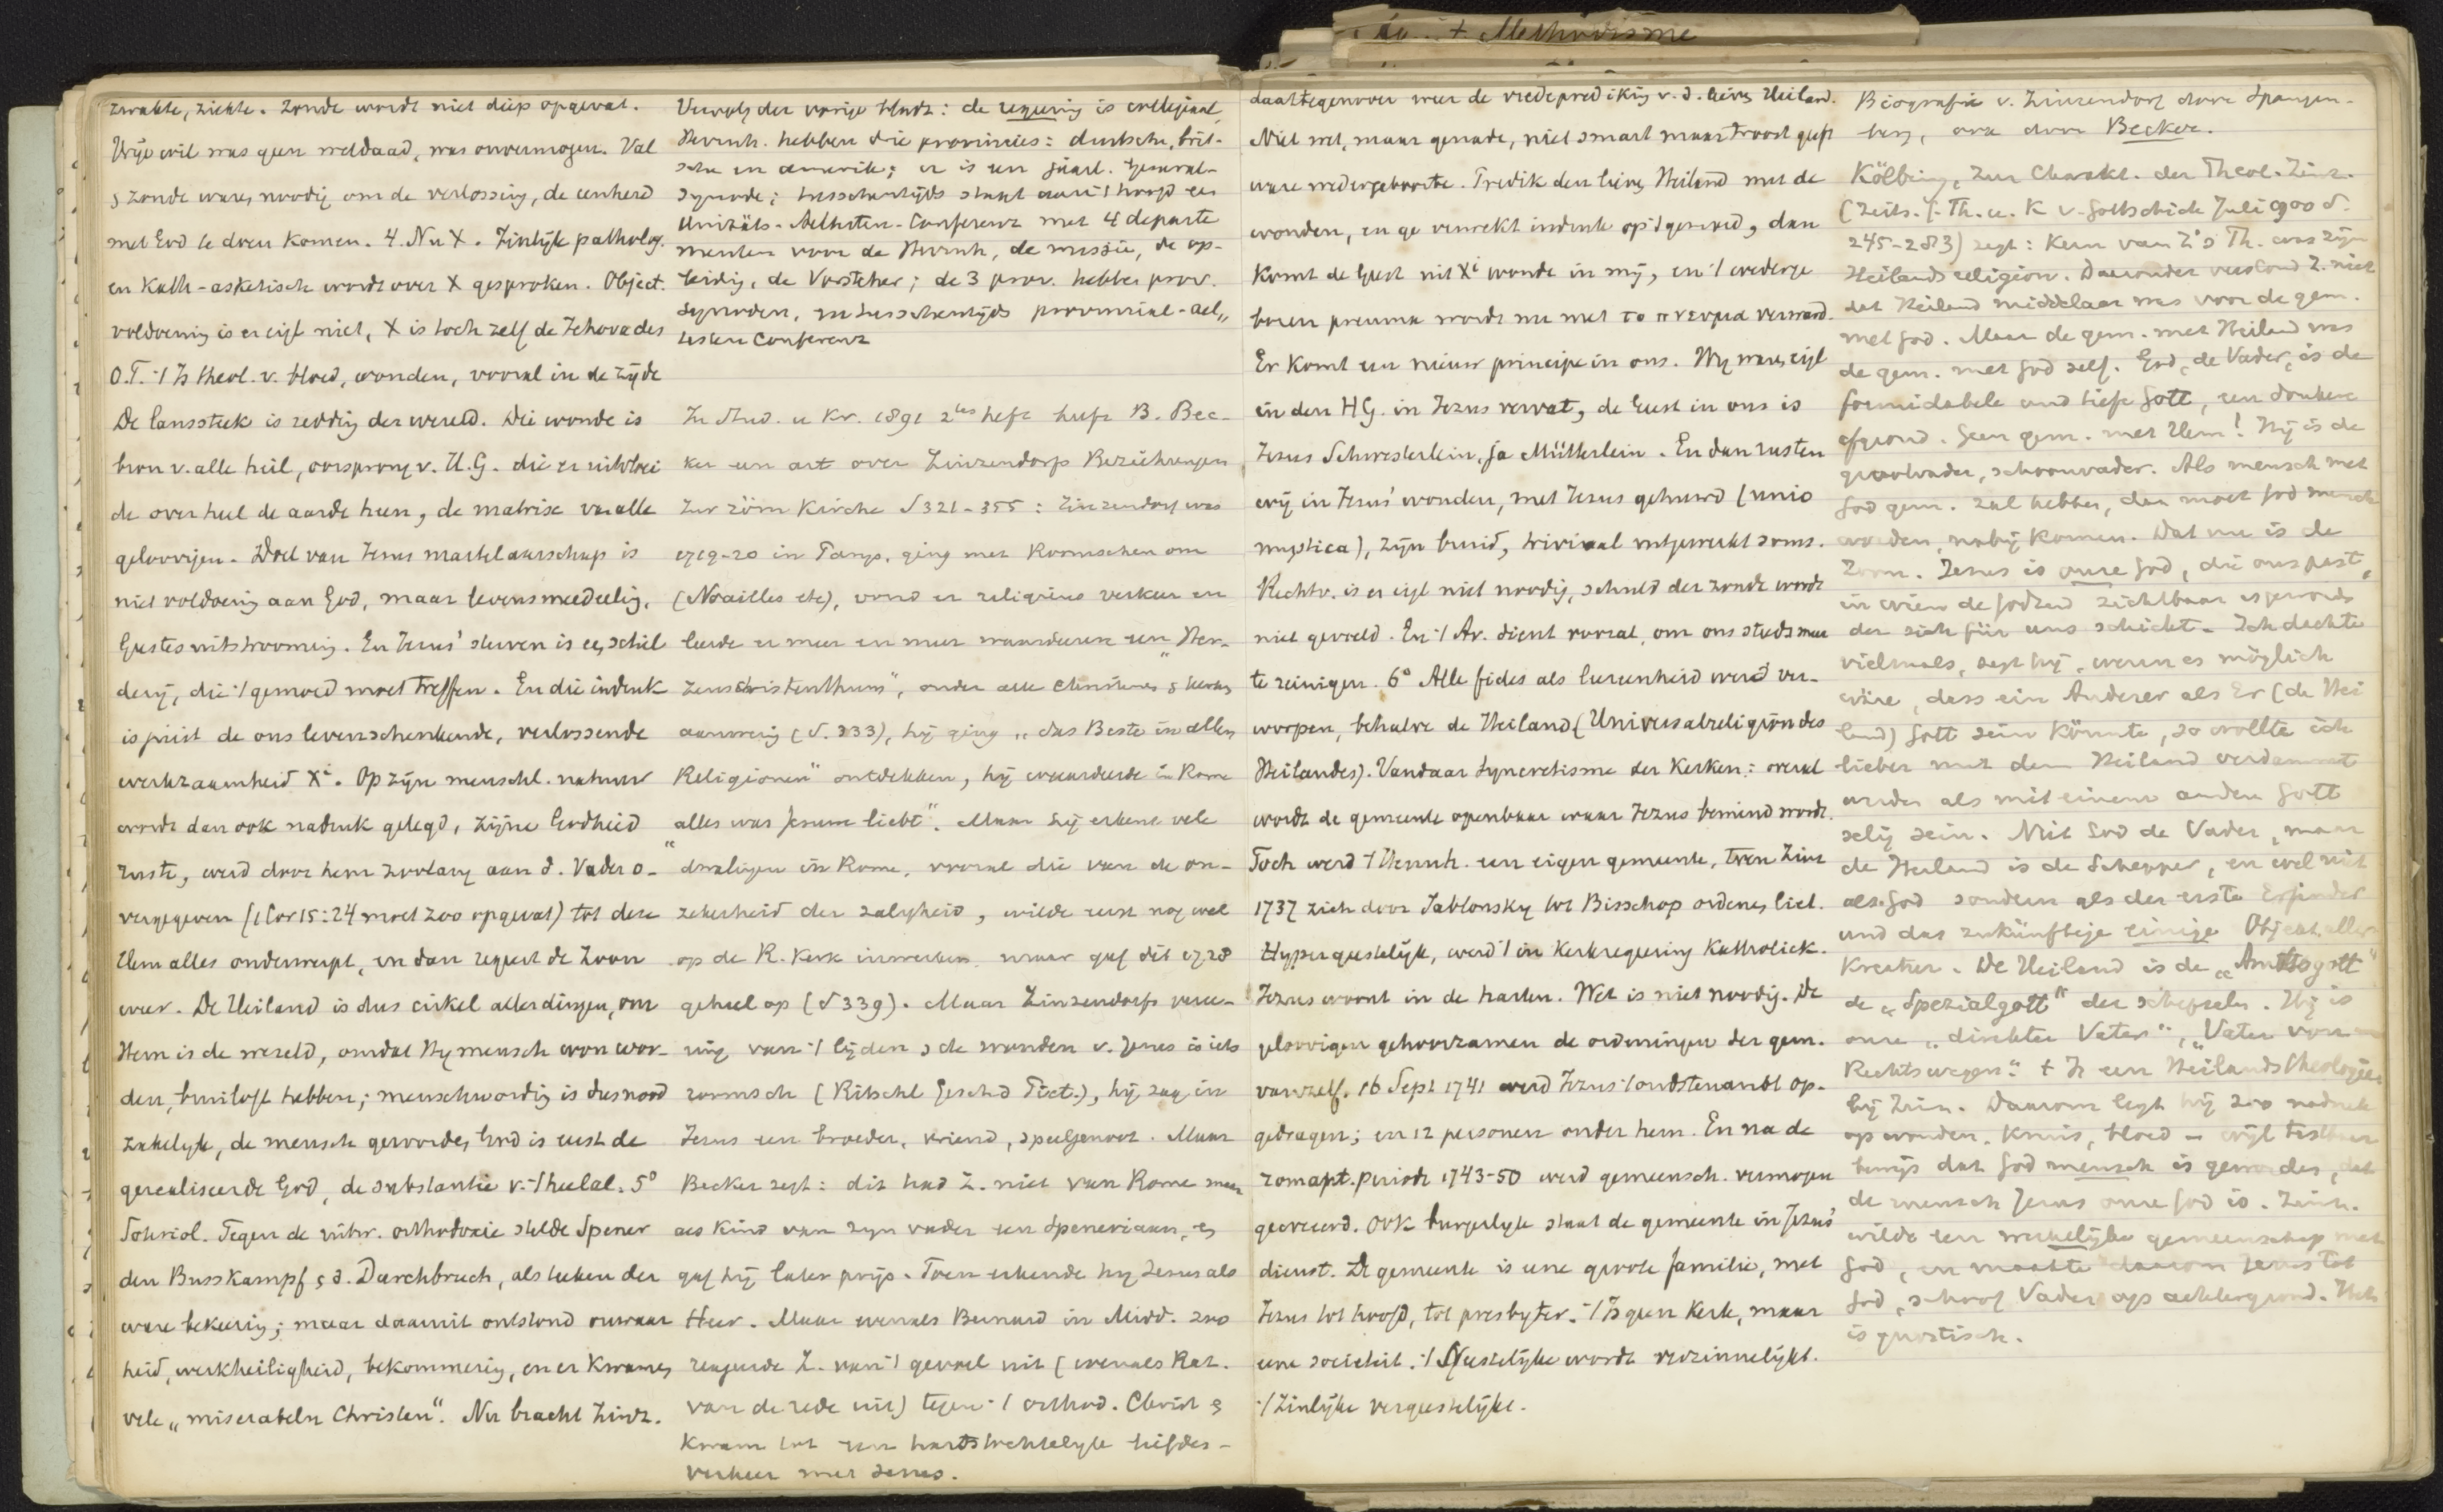 + Methodisme
zwakte, ziekte. Zonde wordt niet diep opgevat.
Vrije wil was geen weldaad, was onvermogen. Val
& zonde waren noodig om de verlossing, de eenheid
met God te doen komen. 4. Nu X. Zinlijk patholog.
en Kath-asketisch wordt over X gesproken. Object.
voldoening is er eigl niet, X is toch zelf de Jehova des
O.T. -/ Is theol. v. bloed, wonden, vooral in de zijde
De lanssteek is redding der wereld. Die wonde is
bron v. alle heil, oorsprong v. H.G. die er uitvloei
de over heel de aarde heen, de matrix van alle
geloovigen. Doel van Jezus martelaarschap is
niet voldoening aan God, maar levensmeedeeling,
Geestesuitstrooming. En Jezus' sterven is een schil
derij, die -/ gemoed moet treffen. En die indruk
is juist de ons levenschenkende, verlossende
werkzaamheid Xi. Op zijn menschl. natuur
wordt dan ook nadruk gelegd, zijne Godheid
rustte, werd door hem zoolang aan d. Vader o-
vergegeven (1 Cor 15:24 moet zoo opgevat) tot deze
Hem alles onderwerpt, en dan regeert de Zoon
weer. De Heiland is dus cirkel aller dingen, om
Hem is de wereld, omdat Hij mensch won wor-
den, bruiloft hebben; menschwording is dus nood
zakelijk, de mensch geworden God is eerst de
gerealiseerde God, de substantie v. -/ heelal. 5°
Soteriol. Tegen de uitw. orthodoxie stelde Spener
den Busskampf & d. Durchbruch, als teeken der
ware bekeering; maar daaruit ontstond onwaar
heid, werkheiligheid, bekommering, en er kwamen
vele „miserabeln Christen". Nu bracht Zinz.
Vervolg der vorige bladz: de regeering is collegiaal,
Hernh. hebben drie provincies: duitsche, brit-
sche en amerik; er is een jaarl. General-
synode; tusschentijds staat aan -/ hoofd een
Unitäts-Aeltesten-Conferenz met 4 departe
menten voor de Hernh, de missie, de op-
leiding, de Vorsteher; de 3 prov. hebben prov.
synoden, en tusschentijds provinzial-ael„
testen Conferenz
In Stud. u Kr. 1891 2tes heft heeft B. Bec-
ker een art over Zinzendorfs Beziehungen
zur röm Kirche S 321-355: Zinzendorf was
1719-20 in Parijs, ging met Roomschen om
(Noailles etc), vond er religieus verkeer en
leerde er meer en meer waardeeren een „Her-
zenschristenthum", onder alle
aanwezig (S. 333), hij ging „das Beste in allen
Religionen" ontdekken, hij waardeerde in Rome
alles was Jesum liebt". Maar hij erkent vele
dwalingen in Rome, vooral die van de on-
zekerheid der zaligheid, wilde eerst nog wel
op de R. Kerk inwerken maar gaf dit 1728
geheel op (S 339). Maar Zinzendorfs veree-
ring van -/ lijden & de wonden v. Jezus is iets
roomsch (Ritschl Gesch d Piet.), hij zag in
Jezus een broeder, vriend, speelgenoot. Maar
Becker zegt: dit had Z. niet van Rome maar
als kind van zijn vader een Speneriaan, en
gaf hij later prijs. Toen erkende hij Jezus als
Heer. Maar evenals Bernard in Midd. zoo
reageerde Z. van -/ gevoel uit (evenals Rat.
van de rede uit) tegen -/ orthod. Christ &
kwam tot een hartstochtelijk liefdes-
verkeer met Jezus.
daartegenover weer de vredeprediking v. d. lieven Heiland.
Niet wet, maar genade, niet smart maar troost geeft
ware wedergeboorte. Predik den lieven Heiland met de
wonden, en ge verwekt indruk op -/ gemoed, dan
komt de Geest uit Xi wonde in mij, en -/ wederge
boren pneuma wordt nu met το πνευμα verward.
Er komt een nieuw principe in ons. Wij waren eigl
in den HG. in Jezus vervat, de Geest in ons is
Jesus Schwesterlein, ja Mütterlein. En dan rusten
wij in Jezus' wonden, met Jezus gehuwd (unio
mystica), zijn bruid, triviaal uitgewerkt soms.
Rechtv. is er eigl niet noodig, schuld der zonde wordt
niet gevoeld. En -/ Av. dient vooral, om ons steeds meer
te reinigen. 6° Alle fides als leereenheid werd ver-
worpen, behalve de Heiland (Universalreligion des
Heilandes). Vandaar syncretisme der Kerken: overal
wordt de gemeente openbaar waar Jezus bemind wordt.
Toch werd -/ Hernh. een eigen gemeente, toen Zinz
1737 zich door Jablonsky tot Bisschop ordenen liet.
Hypergeestelijk, werd -/ in Kerkregeering Katholiek.
Jezus woont in de harten. Wet is niet noodig. De
geloovigen gehoorzamen de ordeningen der gem.
vanzelf. 16 Sept 1741 werd Jezus -/ oudstenambt op-
gedragen; en 12 personen onder hem. En na de
romant. periode 1743-50 werd gemeensch. vermogen
gecreeerd. Ook burgerlijk staat de gemeente in Jezus'
dienst. De gemeente is eene groote familie, met
Jezus tot hoofd, tot presbyter. -/ Is geen Kerk, maar
eene societeit. -/ Geestelijke wordt verzinnelijkt.
-/ Zinlijke vergeestelijkt.
Biografie v. Zinzendorf door Spangen-
berg, ook door Becker.
Kölbing, Zur Charakt. der Theol. Zinz.
(Zeits. f. Th. u. K v. Gottschick Juli 1900 S.
245-283) zegt: Kern van Z's Th. was zijn
Heilandsreligion. Daaronder verstond Z. niet
dat Heiland middelaar was voor de gem.
met God. Maar de gem. met Heiland was
de gem. met God zelf. God, de Vader, is de
formidabele und tiefe Gott, een donkere
afgrond. Geen gem. met Hem! Hij is de
grootvader, schoonvader. Als mensch met
God gem. zal hebben, dan moet God mensch
worden, nabij komen. Dat nu is de
Zoon. Jezus is onze God, die ons past,
in wien de Godheid zichtbaar is geworden
der sich für uns schickt. Ich dachte
vielmals, zegt hij, wenn es möglich
wäre, dass ein Anderer als Er (de Hei
land) Gott sein könnte, so wollte ich
lieber mit dem Heiland verdammt
werden als mit einem andern Gott
selig sein. Niet God de Vader, maar
de Heiland is de Schepper, en wel niet
als God sondern als der erste Erfinder
und das zukünftige einige Object aller
Kreatur. De Heiland is de „Amtsgott"
de „Spezialgott" der schepselen. Hij is
onze „direkter Vater", „Vater von
Rechtswegen". + Is een Heilandstheologie
bij Zinz. Daarom legt hij zoo nadruk
op wonden, kruis, bloed - wijl tastbaar
bewijs dat God mensch is geworden, dat
de mensch Jezus onze God is. Zinz.
wilde een werkelijke gemeenschap met
God, en maakte daarom Jezus tot
God, schoof Vader op achtergrond. Het
is gnostisch.